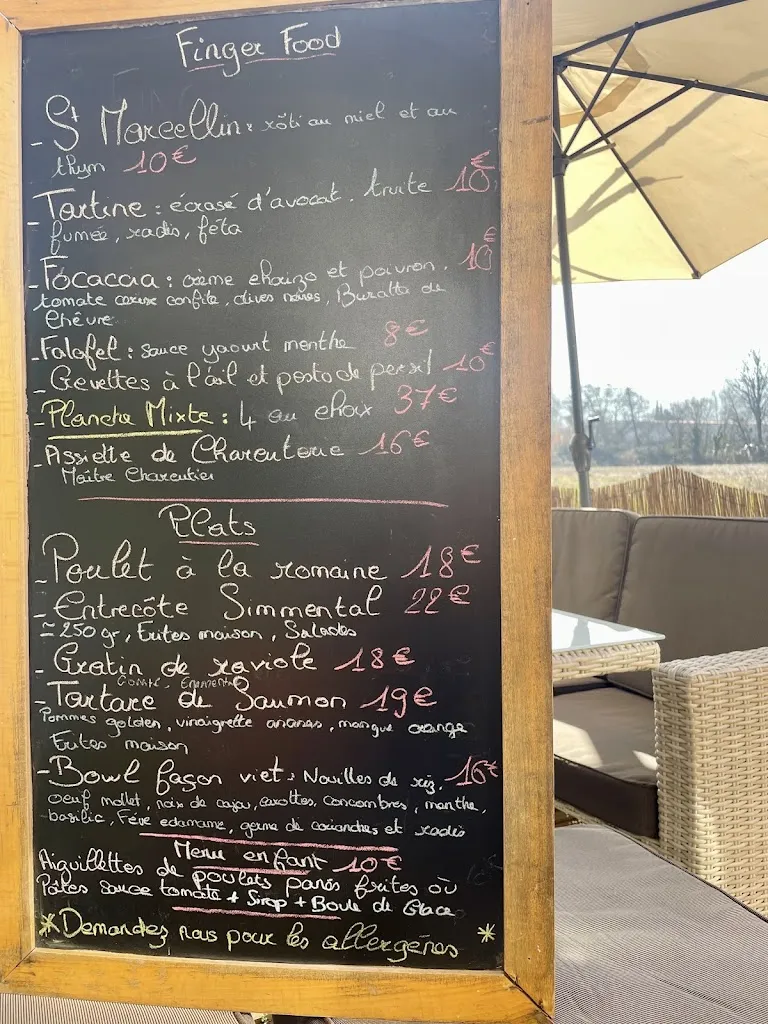 Finger Food
- St Marcellin : rôti au miel et au
thym 10€
- Tartine : écrasé d'avocat, truite 10€
fumée, radis, féta
- Focaccia : crème chorizo et poivron, 10€
tomate cerise confite, olives noires, Buratta de
Chèvre
- Falafel : sauce yaourt menthe 8€
- Gevettes à l'ail et pesto de persil 10€
- Planche Mixte : 4 au choix 37€
- Assiette de Charcuterie 16€
Maître Charcutier
Plats
- Poulet à la romaine 18€
- Entrecôte Simmental 22€
≃ 250 gr, Frites maison, Salades
- Gratin de raviole 18€
Comté, Emmental
- Tartare de Saumon 19€
Pommes golden, vinaigrette ananas, mangue orange
Frites maison
- Bowl façon viet : Nouilles de riz, 16€
oeuf mollet, noix de cajou, carottes, concombres, menthe,
basilic, Fève edamame, germe de coriandres et radis
Menu enfant 10€
Aiguillettes de poulets panés frites où
Pâtes sauce tomate + Sirop + Boule de Glace
* Demandez nous pour les allergènes *